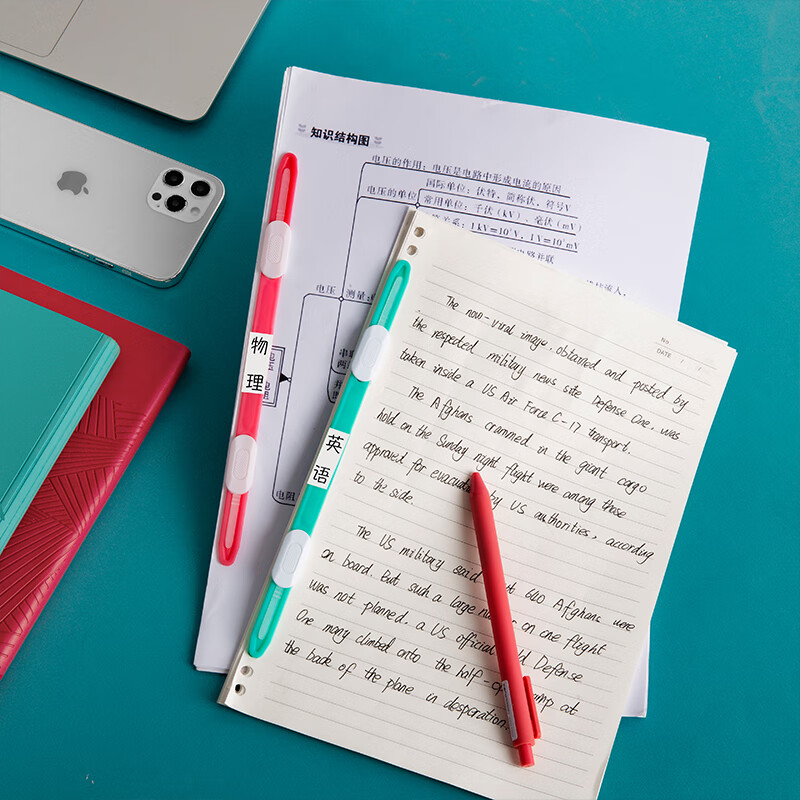 知识结构图
电压的作用：电压是电路中形成电流的原因
国际单位：伏特，简称伏，符号V
电压的单位
常用单位：千伏（kV）、毫伏（mV）
关系：1 kV=10³V，1 V=10³mV
并联
电压
测量
电阻
物理
英语
No
DATE / /
The now-viral image, obtained and posted by
the respected military news site Defense One, was
taken inside a US Air Force C-17 transport.
The Afghans crammed in the giant cargo
hold on the Sunday night flight were among those
approved for evacua by US authorities, according
to the side.
The US military said t 640 Afghans were
on board. But such a large num on one flight
was not planned, a US official ld Defense
One many climbed onto the half-op amp at
the back of the plane in desperation.